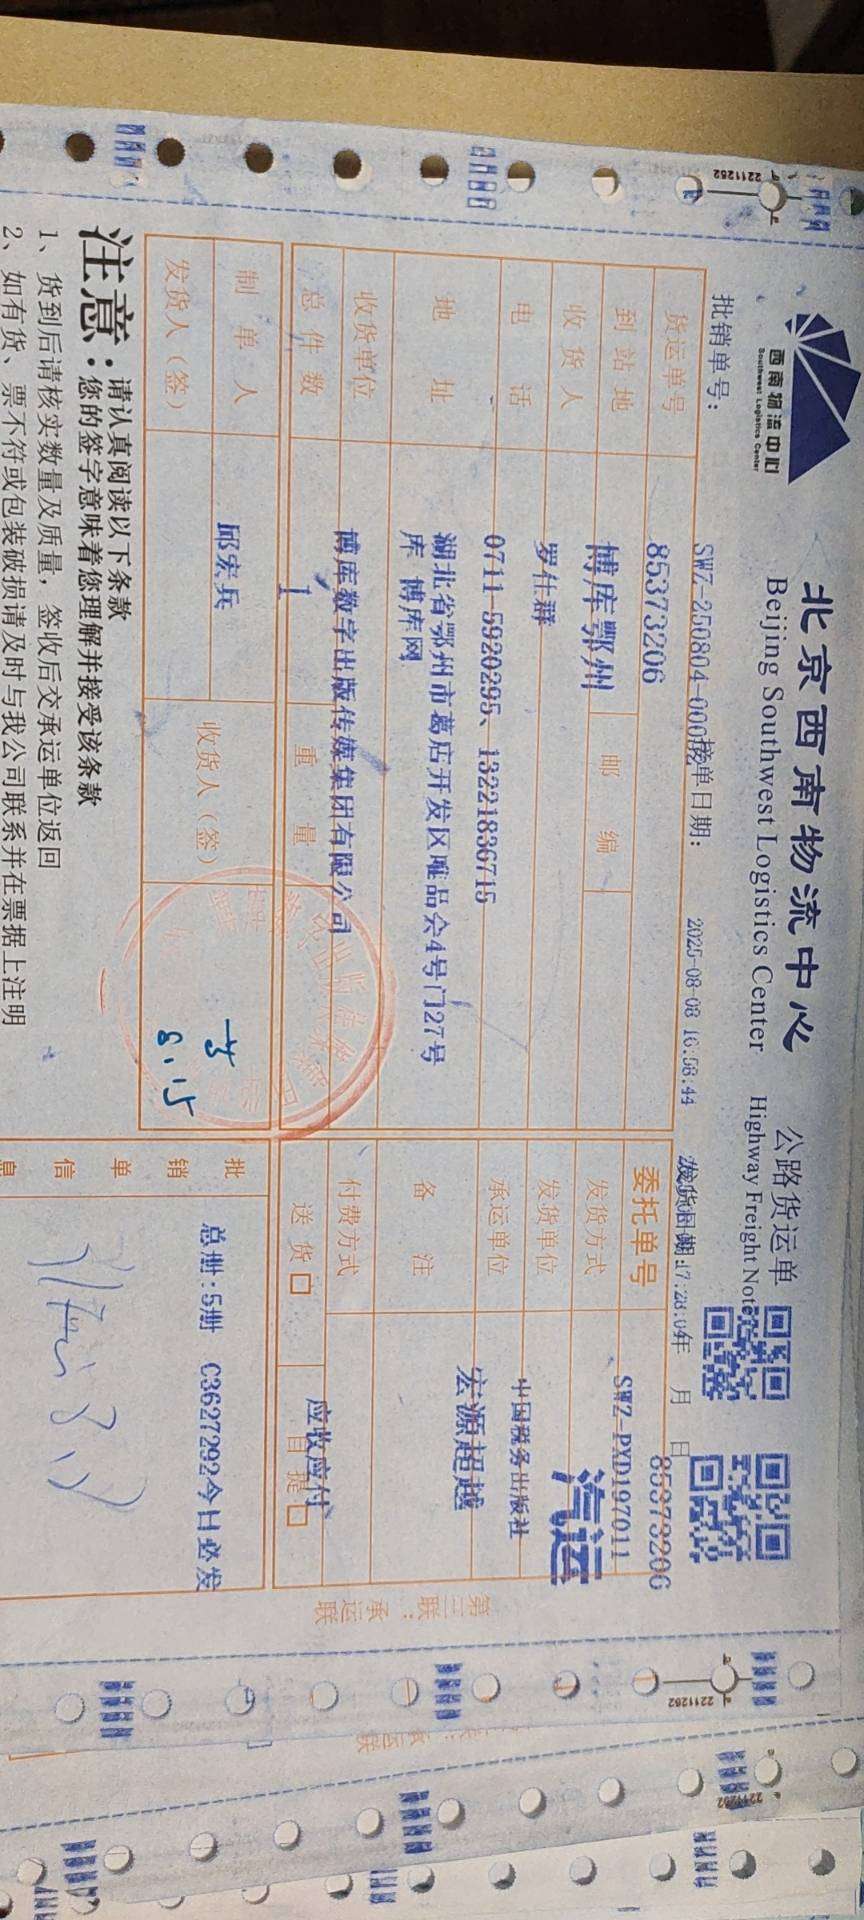 西南物流中心
Southwest Logistics Center
北京西南物流中心 公路货运单
Beijing Southwest Logistics Center Highway Freight Note
批销单号: 接单日期: 2025-08-08 16:58:44 发货日期: 年 月 日
货运单号 85373206 委托单号 85373206
SWZ-PXD197011
到站地 博库鄂州 邮编 发货方式 汽运
收货人 罗仕群 发货单位 中国税务出版社
电话 0711-5920295、13221836715 承运单位 宏源超越
地址 湖北省鄂州市葛店开发区唯品会4号门27号
库 博库网
备注
收货单位 博库数字出版传媒集团有限公司 付费方式 应收应付
总件数 1 重量 送货 自提
制单人 邱宏兵 收货人(签)
发货人(签)
8.15
批销单信息 总册:5册 C3627292今日必发
注意:
请认真阅读以下条款
您的签字意味着您理解并接受该条款
1、货到后请核实数量及质量,签收后交承运单位返回
2、如有货、票不符或包装破损请及时与我公司联系并在票据上注明
第三联:承运联
2211262
2211262
2211262